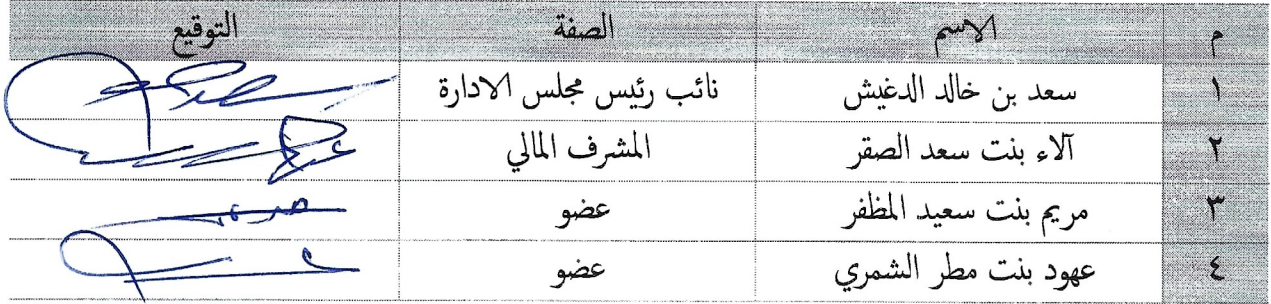 م الاسم الصفة التوقيع
١ سعد بن خالد الدغيش نائب رئيس مجلس الادارة
٢ آلاء بنت سعد الصقر المشرف المالي
٣ مريم بنت سعيد المظفر عضو
٤ عهود بنت مطر الشمري عضو